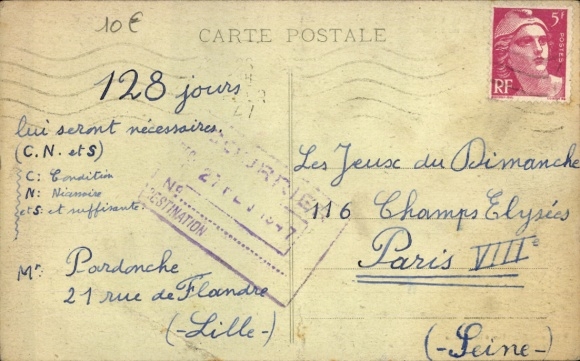 10€
CARTE POSTALE
5F
POSTES
RF
128 jours
lui seront nécessaires.
(C. N. et S)
C: Condition
N:
et S: et suffisante.
Mr Pardonche
21 rue de Flandre
(-Lille-)
COURRIER
27 FEV 1947
N°
DESTINATION
Les Jeux du Dimanche
116 Champs Elysées
Paris VIIIe
(-Seine-)